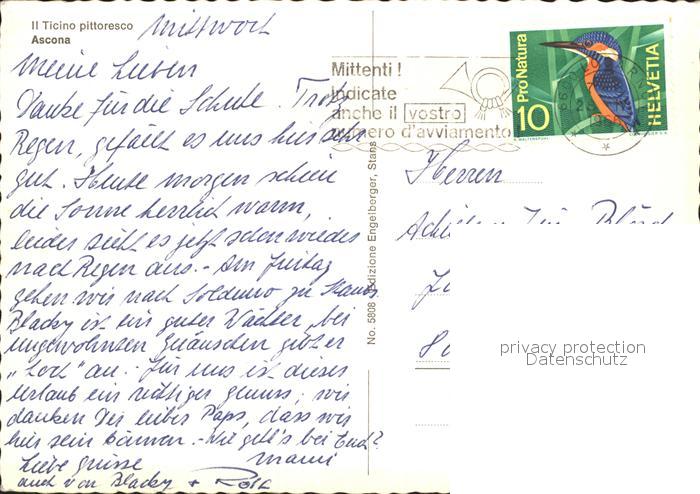 Il Ticino pittoresco
Ascona
Mittwoch
Meine Lieben
Danke für die Schuhe. Trotz
Regen, gefällt es uns hier sehr
gut. Heute morgen schien
die Sonne herrlich warm,
leider sieht es jetzt schon wieder
nach Regen aus.- Am Freitag
gehen wir nach Solduno zu
Blacky ist ein guter Wächter, bei
ungewohnten Geräuschen
an. Für uns ist dieser
Urlaub ein richtiger Genuss, wir
danken Dir lieber Paps, dass wir
hier sein können.- Wie geht's bei Euch?
Liebe Grüsse Mami
auch von Blacky +
No. 5808 Edizione Engelberger, Stans
Mittenti!
Indicate
anche il vostro
numero d'avviamento
Pro Natura
10
HELVETIA
Herren
privacy protection
Datenschutz